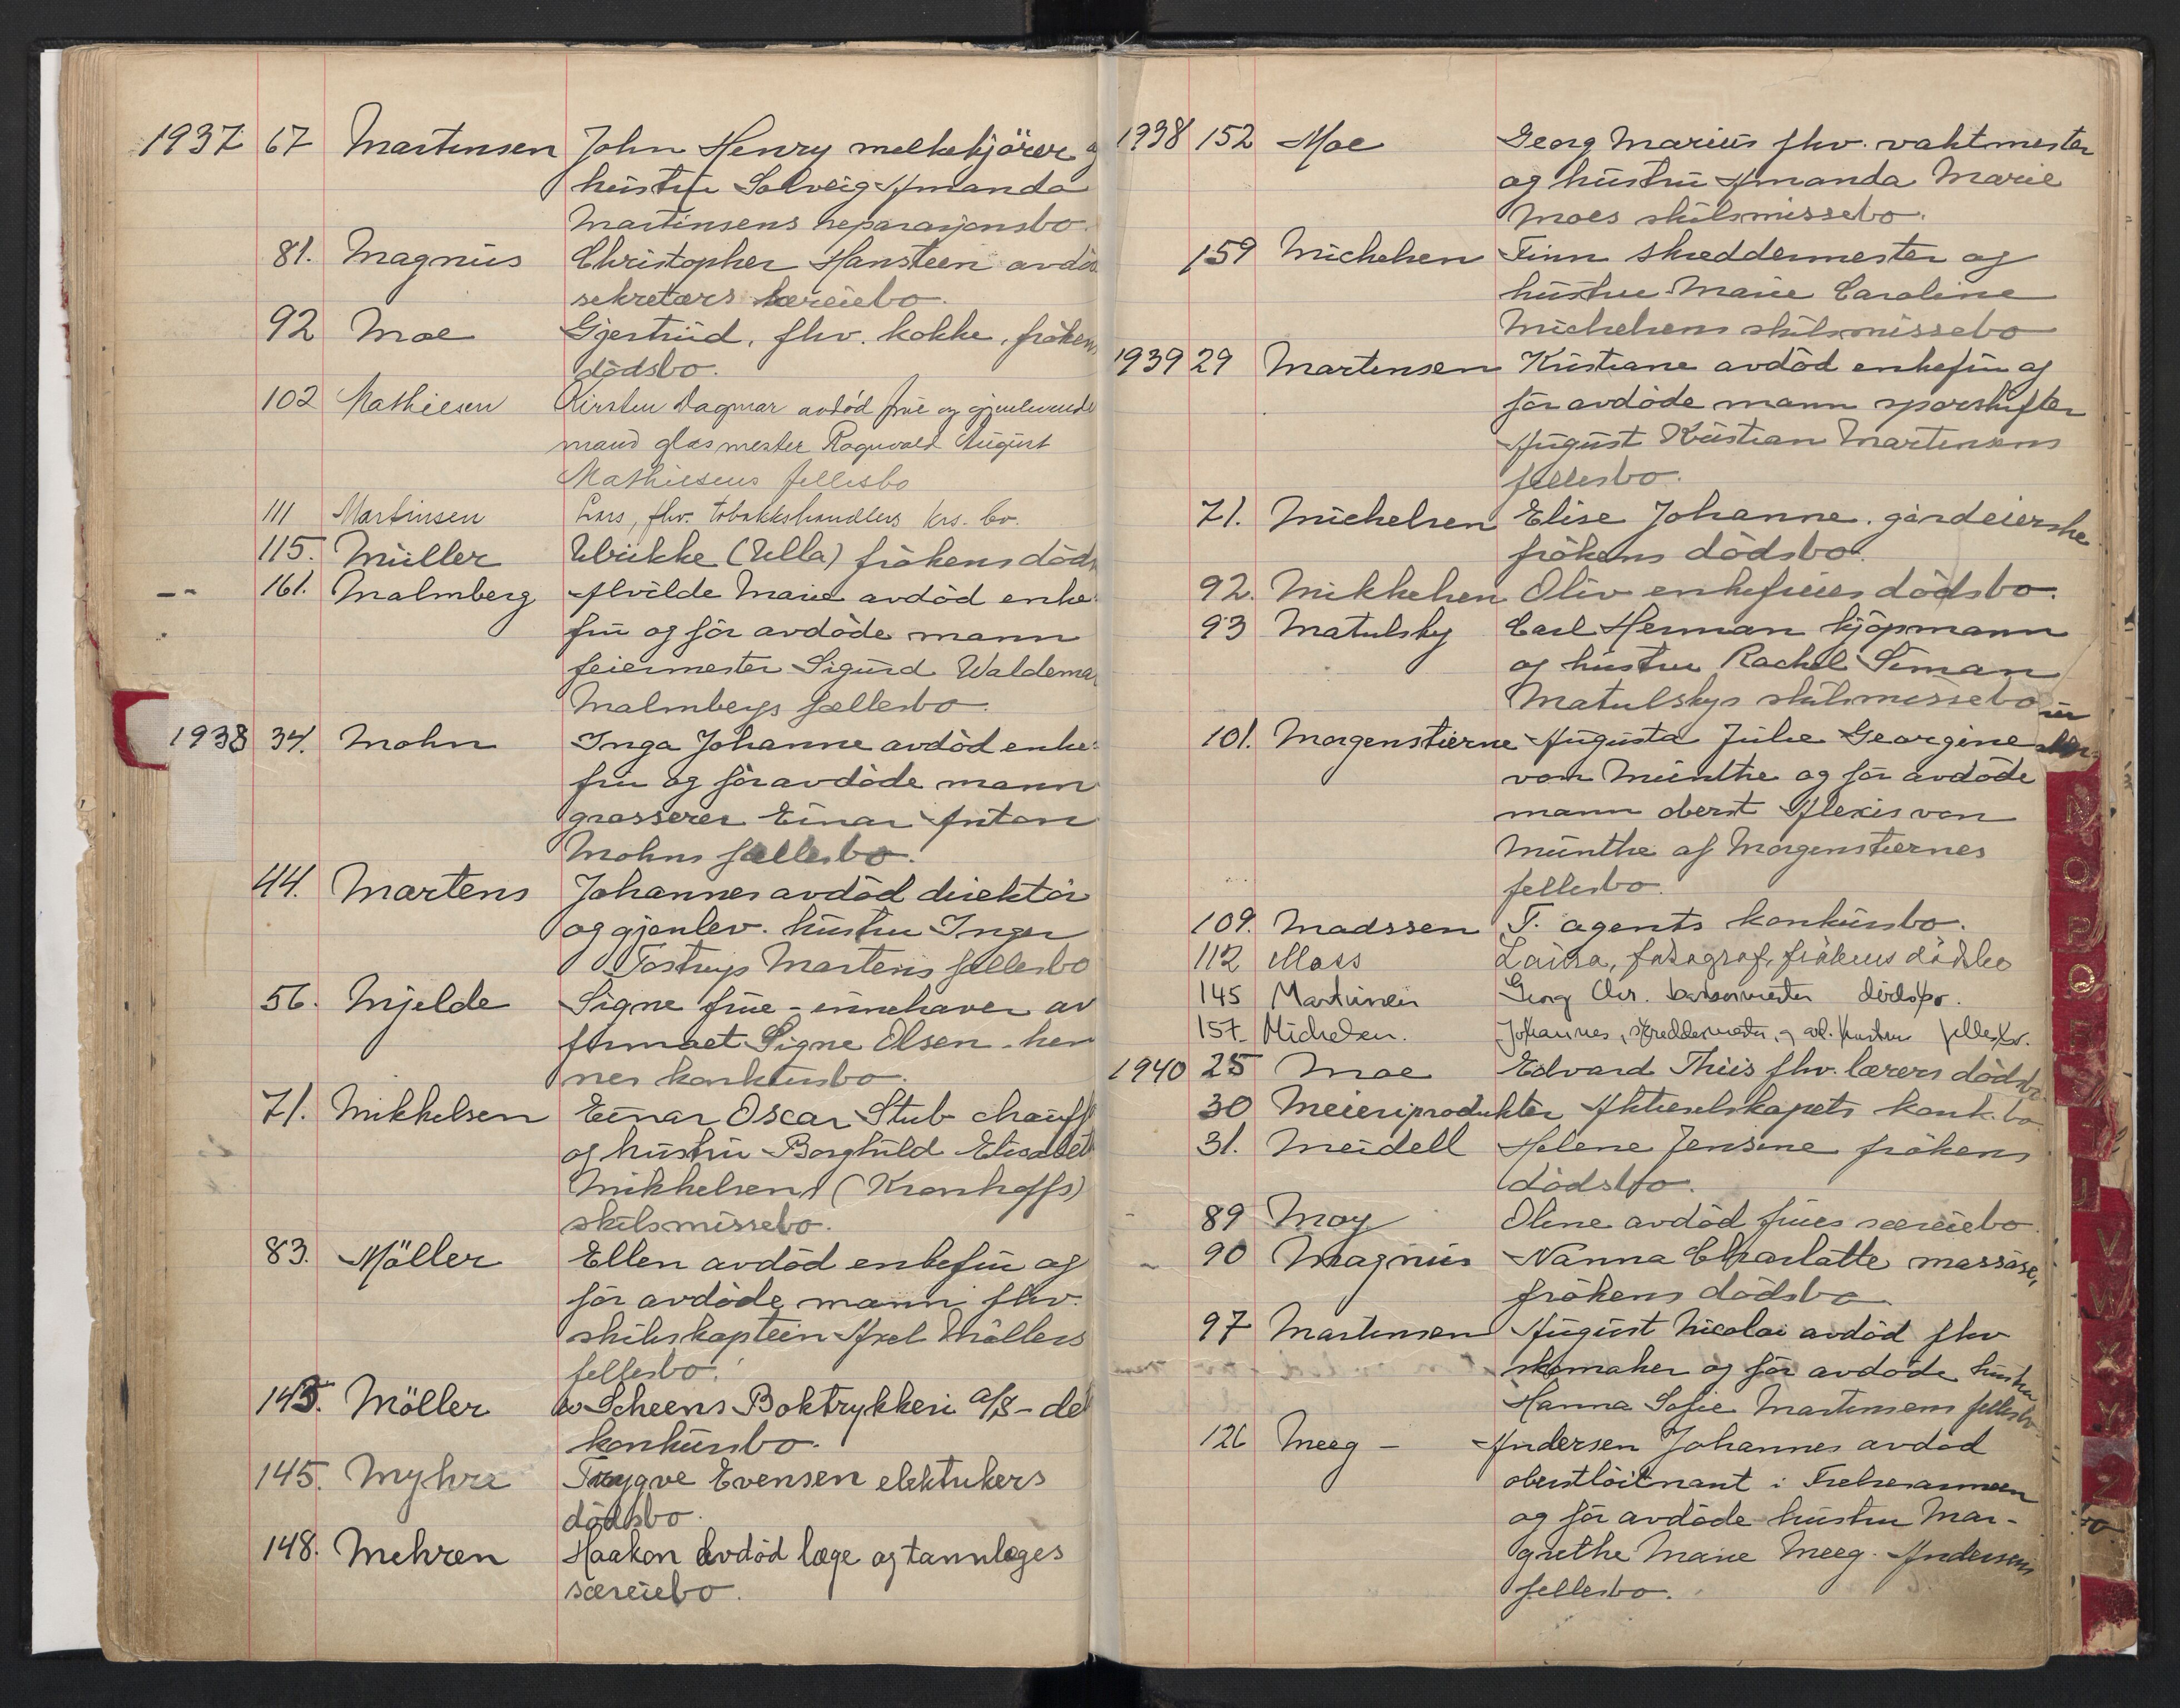 1937 67 Martinsen John Henry melkekjörer og
hustru Solveig Amanda
Martinsens separasjonsbo.
81. Magnus Christopher Hansteen avdöd
sekretærs særeiebo.
92 Moe Gjertrud, fhv. kokke, frökens
dödsbo.
102 Mathiesen Kirsten Dagmar avdöd frue og gjenlevende
mand glasmester Ragnvald August
Mathiesens fellesbo
111 Martinsen Lars, fhv. tobakkshandlers krs. bo.
115. Müller Ulrikke (Ulla) frökens döds
161. Malmberg Alvilde Marie avdöd enke-
fru og för avdöde mann
feiermester Sigurd Waldemar
Malmbergs fellesbo.
1938 34. Mohn Inga Johanne avdöd enke-
fru og för avdöde mann
grosserer Einar Anton
Mohns fellesbo.
44. Martens Johannes avdöd direktör
og gjenlev. hustru Inger
Tostrup Martens fellesbo
56. Mjelde Signe frue - innehaver av
firmaet Signe Olsen - hen
nes konkursbo.
71. Mikkelsen Einar Oscar Stub chauff
og hustru Borghild Elisabeth
Mikkelsens (Kronhoffs)
skilsmissebo.
83. Möller Ellen avdöd enkefru og
för avdöde mann fhv.
skibskaptein Axel Möllers
fellesbo.
143. Möller & Scheens Boktrykkeri A/S - dets
konkursbo.
145. Myhre Trygve Evensen elektrikers
dödsbo.
148. Mehren Haakon avdöd læge og tannlæges
særeiebo.
1938 152 Moe Georg Marius fhv. vaktmester
og hustru Amanda Marie
Moes skilsmissebo.
159 Michelsen Finn skreddermester og
hustru Marie Caroline
Michelsens skilsmissebo
1939 29 Martinsen Kristiane avdöd enkefru og
för avdöde mann sporskifter
August Kristian Martinsens
fellesbo.
71. Michelsen Elise Johanne. gårdeierske
frökens dödsbo.
92. Mikkelsen Oliv enkefrues dödsbo.
93 Matulsky Carl Herman kjöpmann
og hustru Rachel Siman
Matulskys skilsmissebo
101. Morgenstierne Augusta Julie Georgine
von Munthe og för avdöde
mann oberst Alexis von
Munthe af Morgenstiernes
fellesbo.
109. Madssen T. agents konkursbo.
112 Moss Laura, fotograf, frökens dödsbo
145 Martinsen Georg Chr. dödsbo.
157. Michelsen. Johannes, skreddermester, og avd. hustru fellesbo.
1940 25 Moe Edvard Thiis fhv. lærers dödsbo
30 Meieriprodukter Aktieselskapets konk. bo.
31. Meidell Helene Jensine frökens
dödsbo.
89 Moy Oline avdöd frues særeiebo.
90 Magnus Nanna Charlotte massöse,
frökens dödsbo
97 Martinsen August Nicolai avdöd fhv
skomaker og för avdöde hustru
Hanna Sofie Martinsens fellesbo
126 Meeg - Andersen Johannes avdöd
oberstlöitnant i Frelsesarmeen
og för avdöde hustru Mar-
grethe Marie Meeg-Andersens
fellesbo.
N
O
P
Q
R
S
T
U
V
W
X
Y
Z